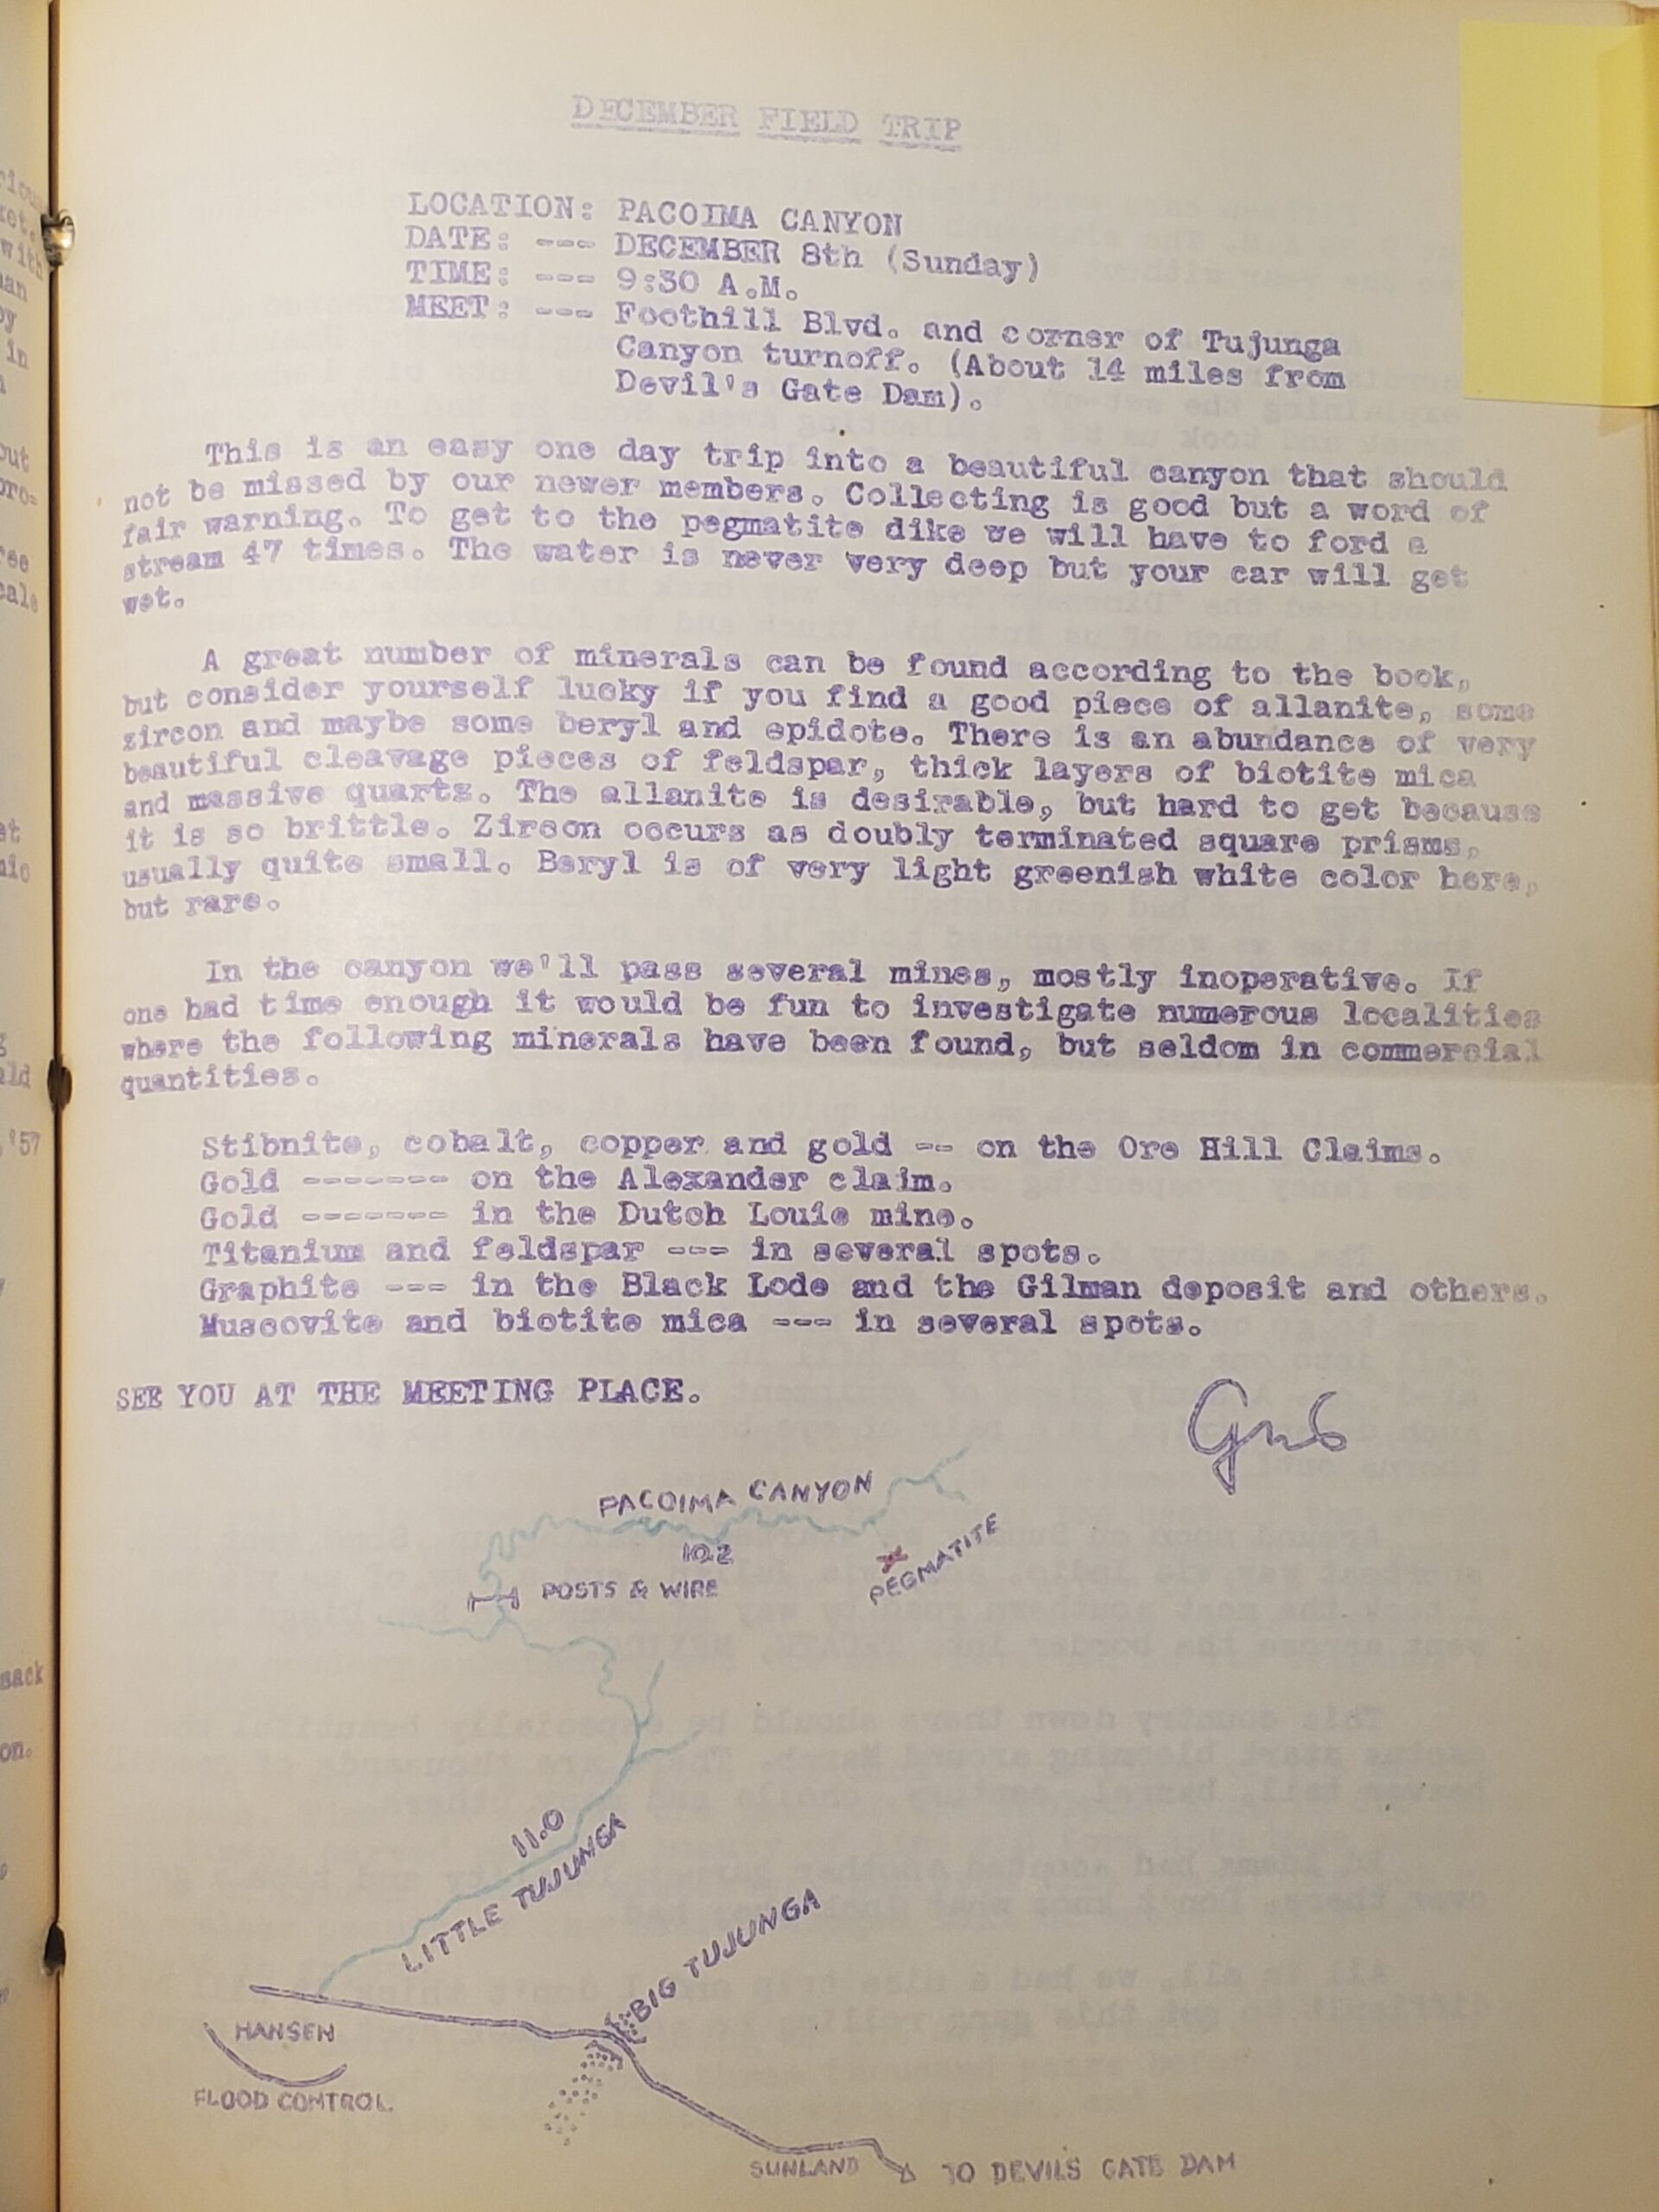 DECEMBER FIELD TRIP
LOCATION: PACOIMA CANYON
DATE: --- DECEMBER 8th (Sunday)
TIME: --- 9:30 A.M.
MEET: --- Foothill Blvd. and corner of Tujunga
Canyon turnoff. (About 14 miles from
Devil's Gate Dam).
This is an easy one day trip into a beautiful canyon that should
not be missed by our newer members. Collecting is good but a word of
fair warning. To get to the pegmatite dike we will have to ford a
stream 47 times. The water is never very deep but your car will get
wet.
A great number of minerals can be found according to the book,
but consider yourself lucky if you find a good piece of allanite, some
zircon and maybe some beryl and epidote. There is an abundance of very
beautiful cleavage pieces of feldspar, thick layers of biotite mica
and massive quartz. The allanite is desirable, but hard to get because
it is so brittle. Zircon occurs as doubly terminated square prisms,
usually quite small. Beryl is of very light greenish white color here,
but rare.
In the canyon we'll pass several mines, mostly inoperative. If
one had time enough it would be fun to investigate numerous localities
where the following minerals have been found, but seldom in commercial
quantities.
Stibnite, cobalt, copper and gold -- on the Ore Hill Claims.
Gold ------- on the Alexander claim.
Gold ------- in the Dutch Louie mine.
Titanium and feldspar --- in several spots.
Graphite --- in the Black Lode and the Gilman deposit and others.
Muscovite and biotite mica --- in several spots.
SEE YOU AT THE MEETING PLACE.
PACOIMA CANYON
10.2
PEGMATITE
POSTS & WIRE
11.0
LITTLE TUJUNGA
BIG TUJUNGA
HANSEN
FLOOD CONTROL
SUNLAND
TO DEVILS GATE DAM
'57